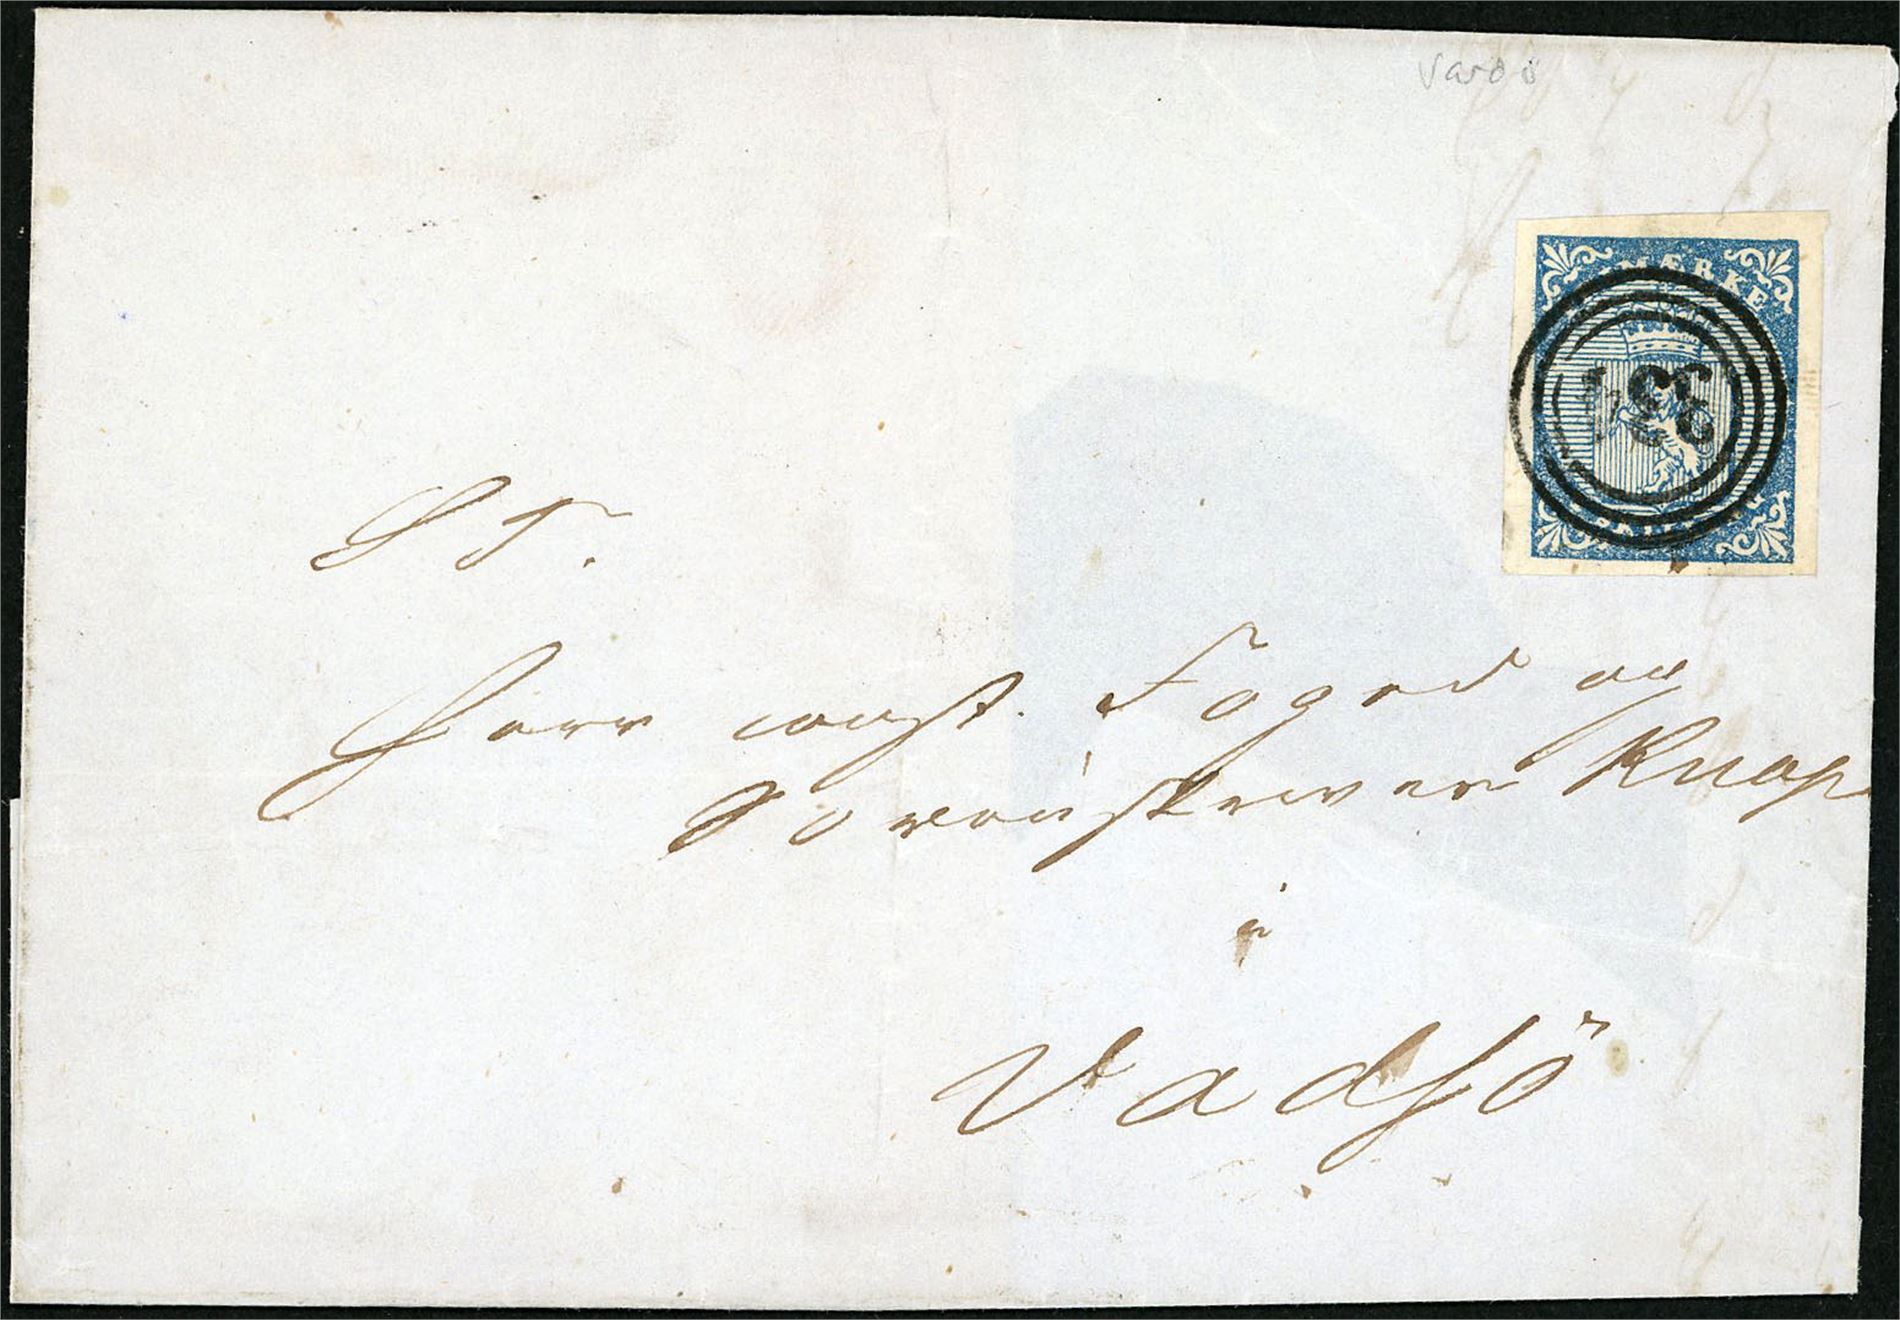 Vardö
MÆRKE
334
S T.
Herr const. Foged og
Sorenskriver Knap
i
Vadsö